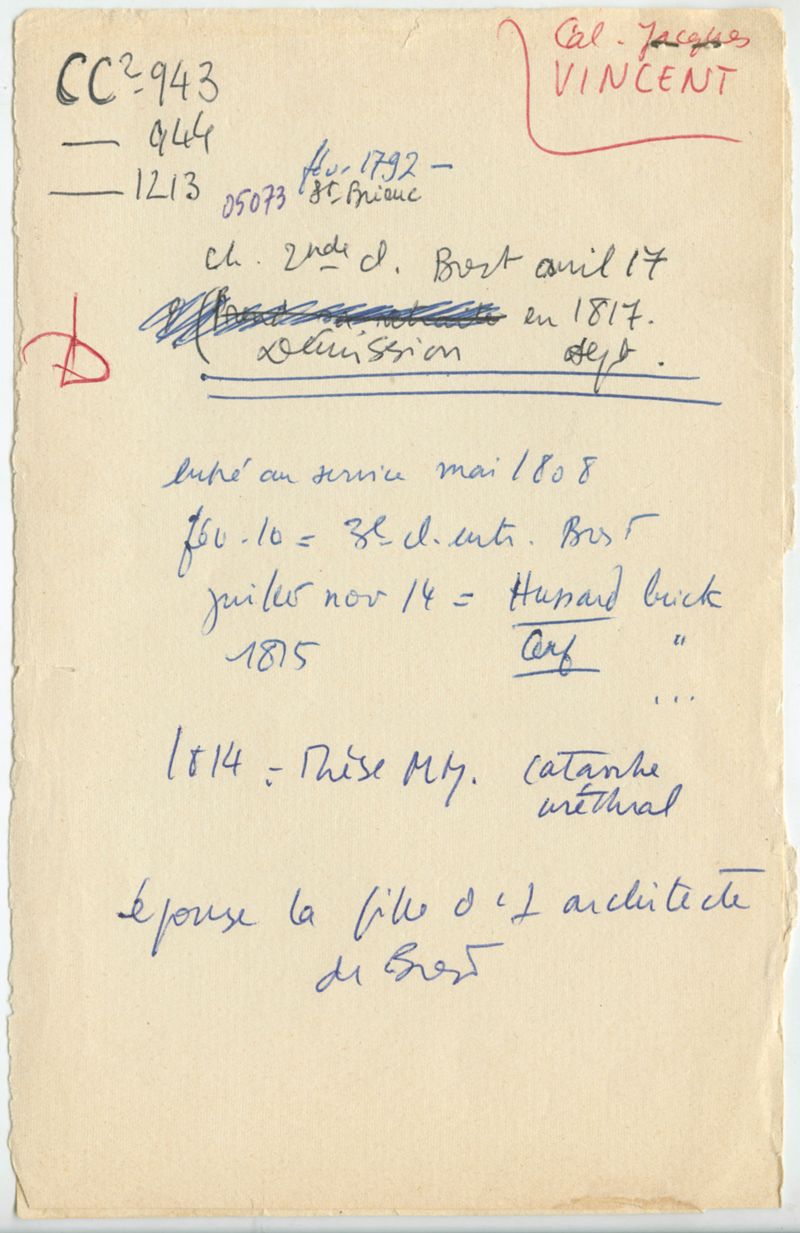 CC2-943
— 944
— 1213
Cal. Jacques
VINCENT
fév. 1792 —
05073 St-Brieuc
ch. 2nde cl. Brest avril 17
en 1817.
Démission sept.
entré au service mai 1808
fév. 10 = 3e cl. entr. Brest
juillet nov 14 = Hussard brick
1815 Cerf "
...
1814 = Thèse MM. catarrhe
uréthral
épouse la fille d'1 architecte
de Brest